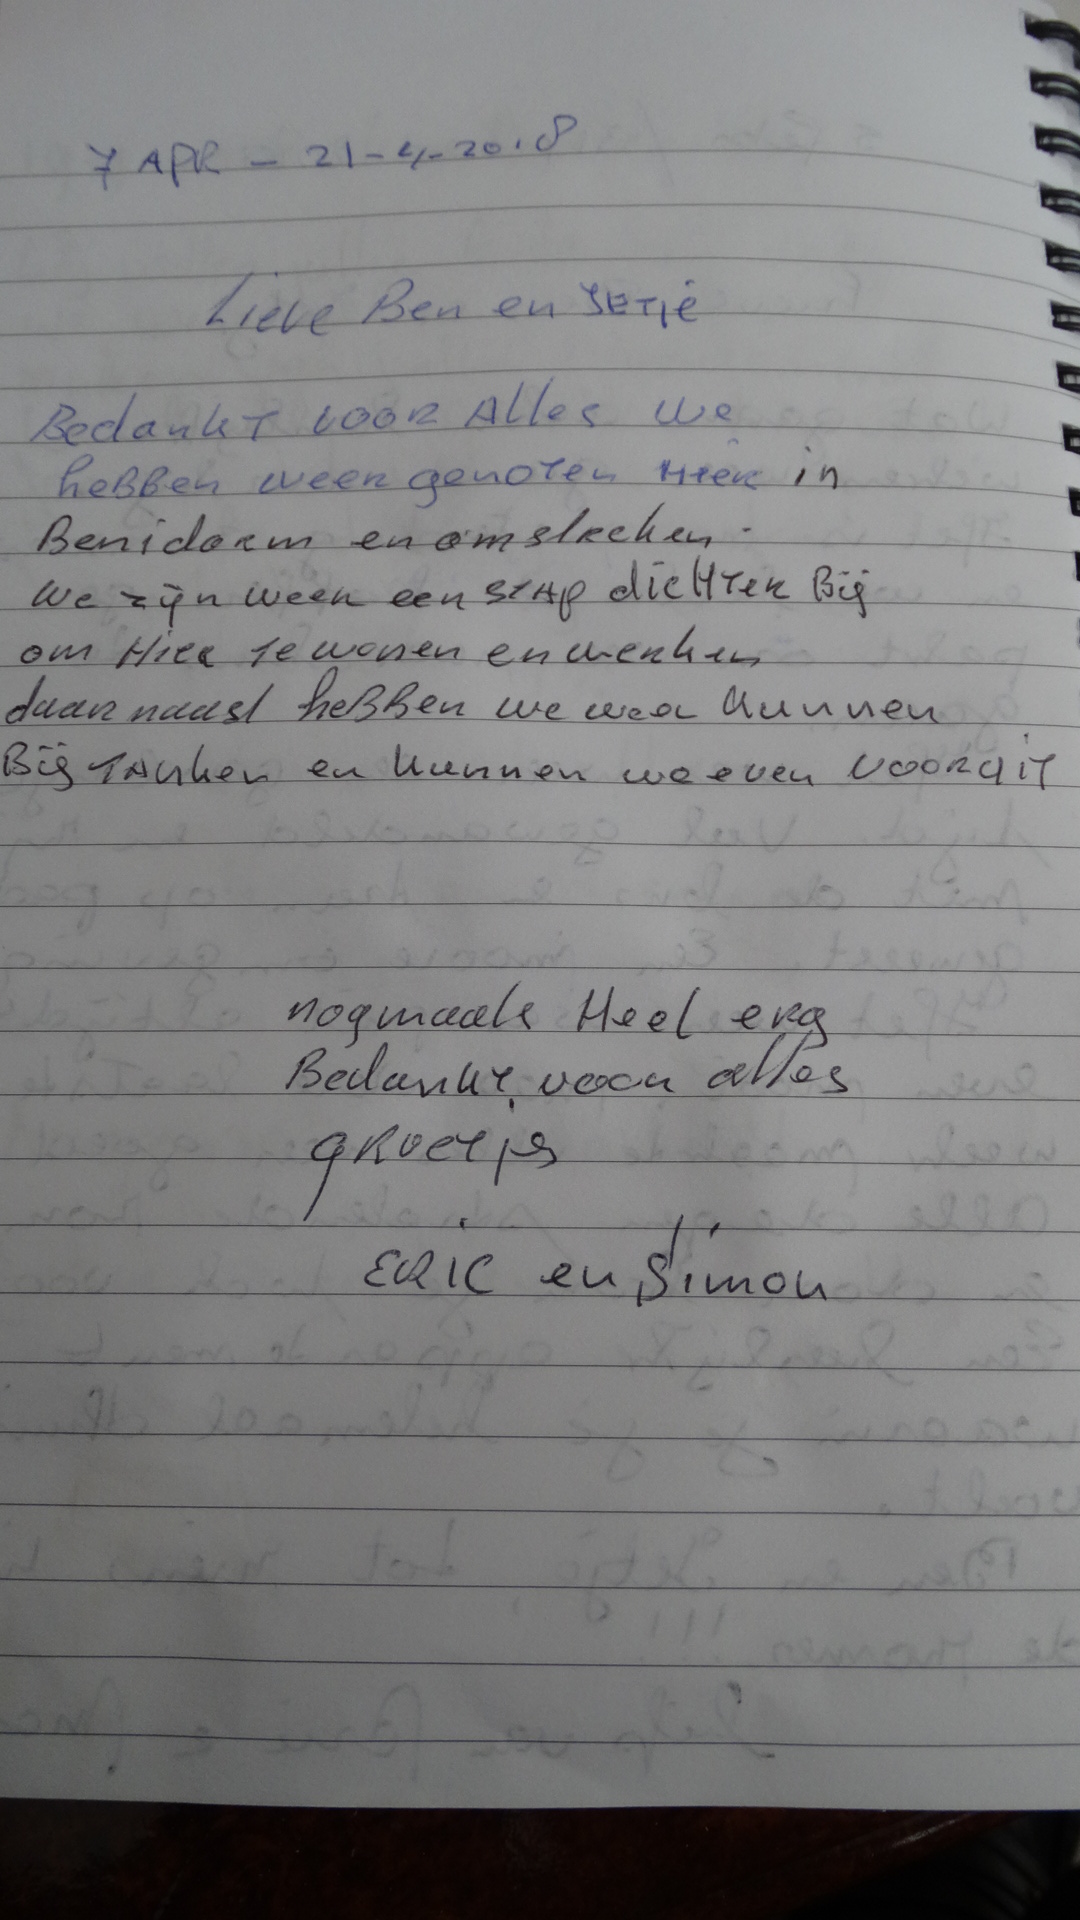 7 APR - 21-4-2018
Lieve Ben en Jetje
Bedankt voor Alles we
hebben weer genoten Hier in
Benidorm en omstreken.
We zijn weer een stap dichter Bij
om Hier te wonen en werken
daar naast hebben we weer kunnen
Bij tanken en kunnen we even vooruit
nogmaals Heel erg
Bedankt voor alles
groetjes
ERIC en Simon